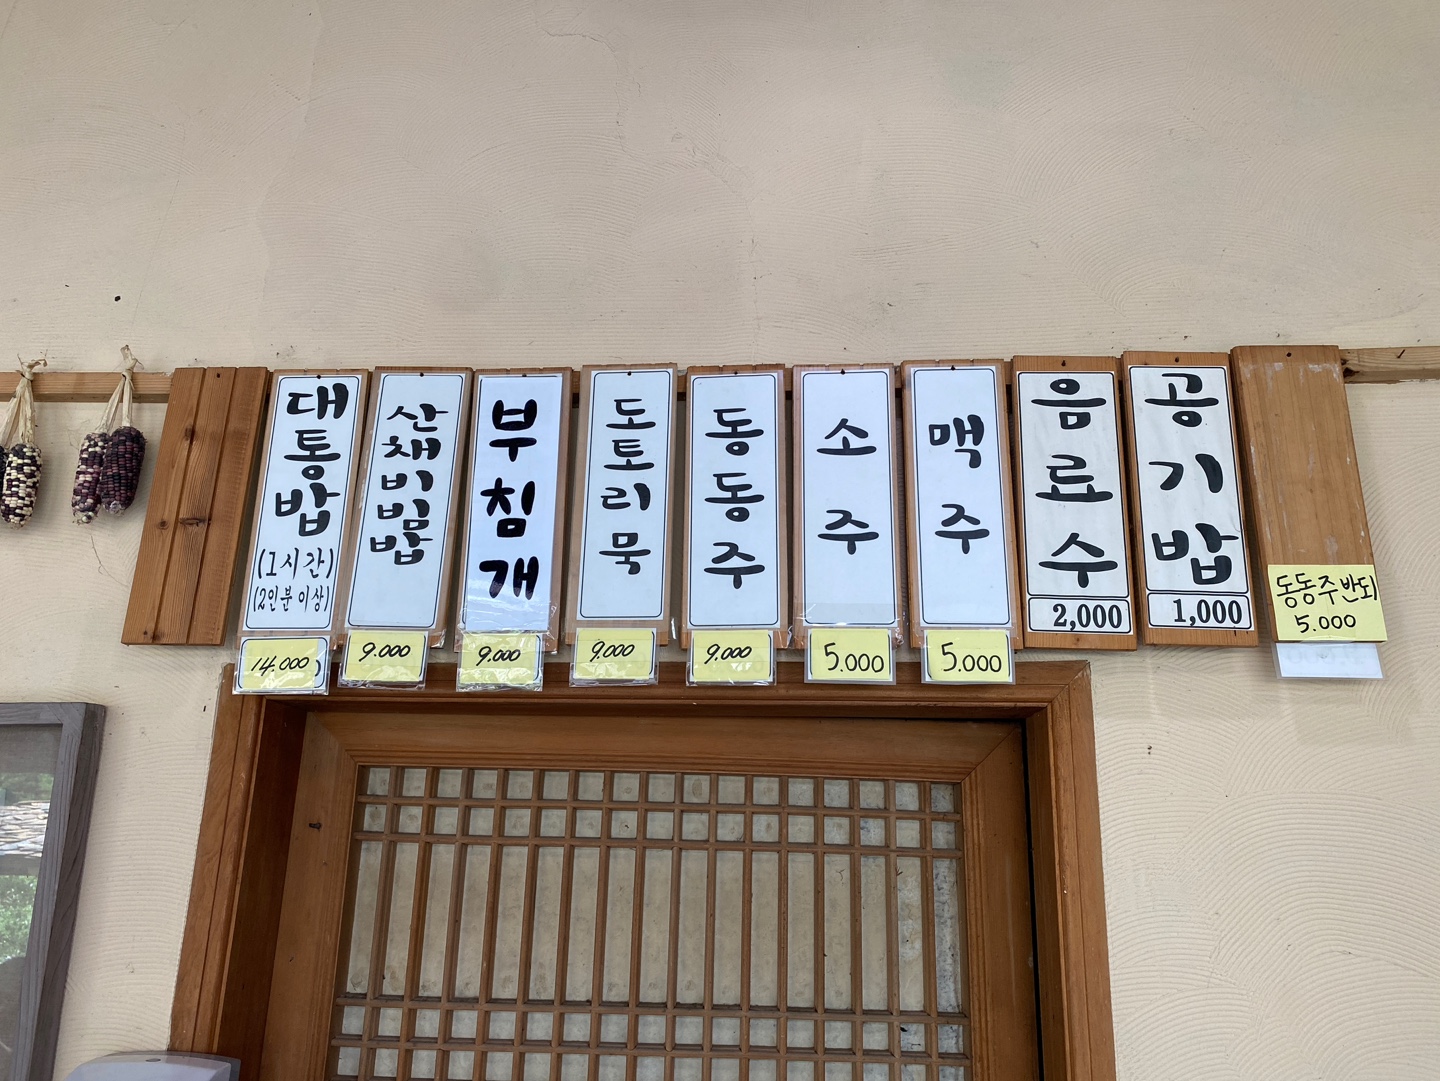 대통밥
(1시간)
(2인분 이상)
14.000
산채비빔밥
9.000
부침개
9.000
도토리묵
9.000
동동주
9.000
소주
5.000
맥주
5.000
음료수
2,000
공기밥
1,000
동동주반되
5.000